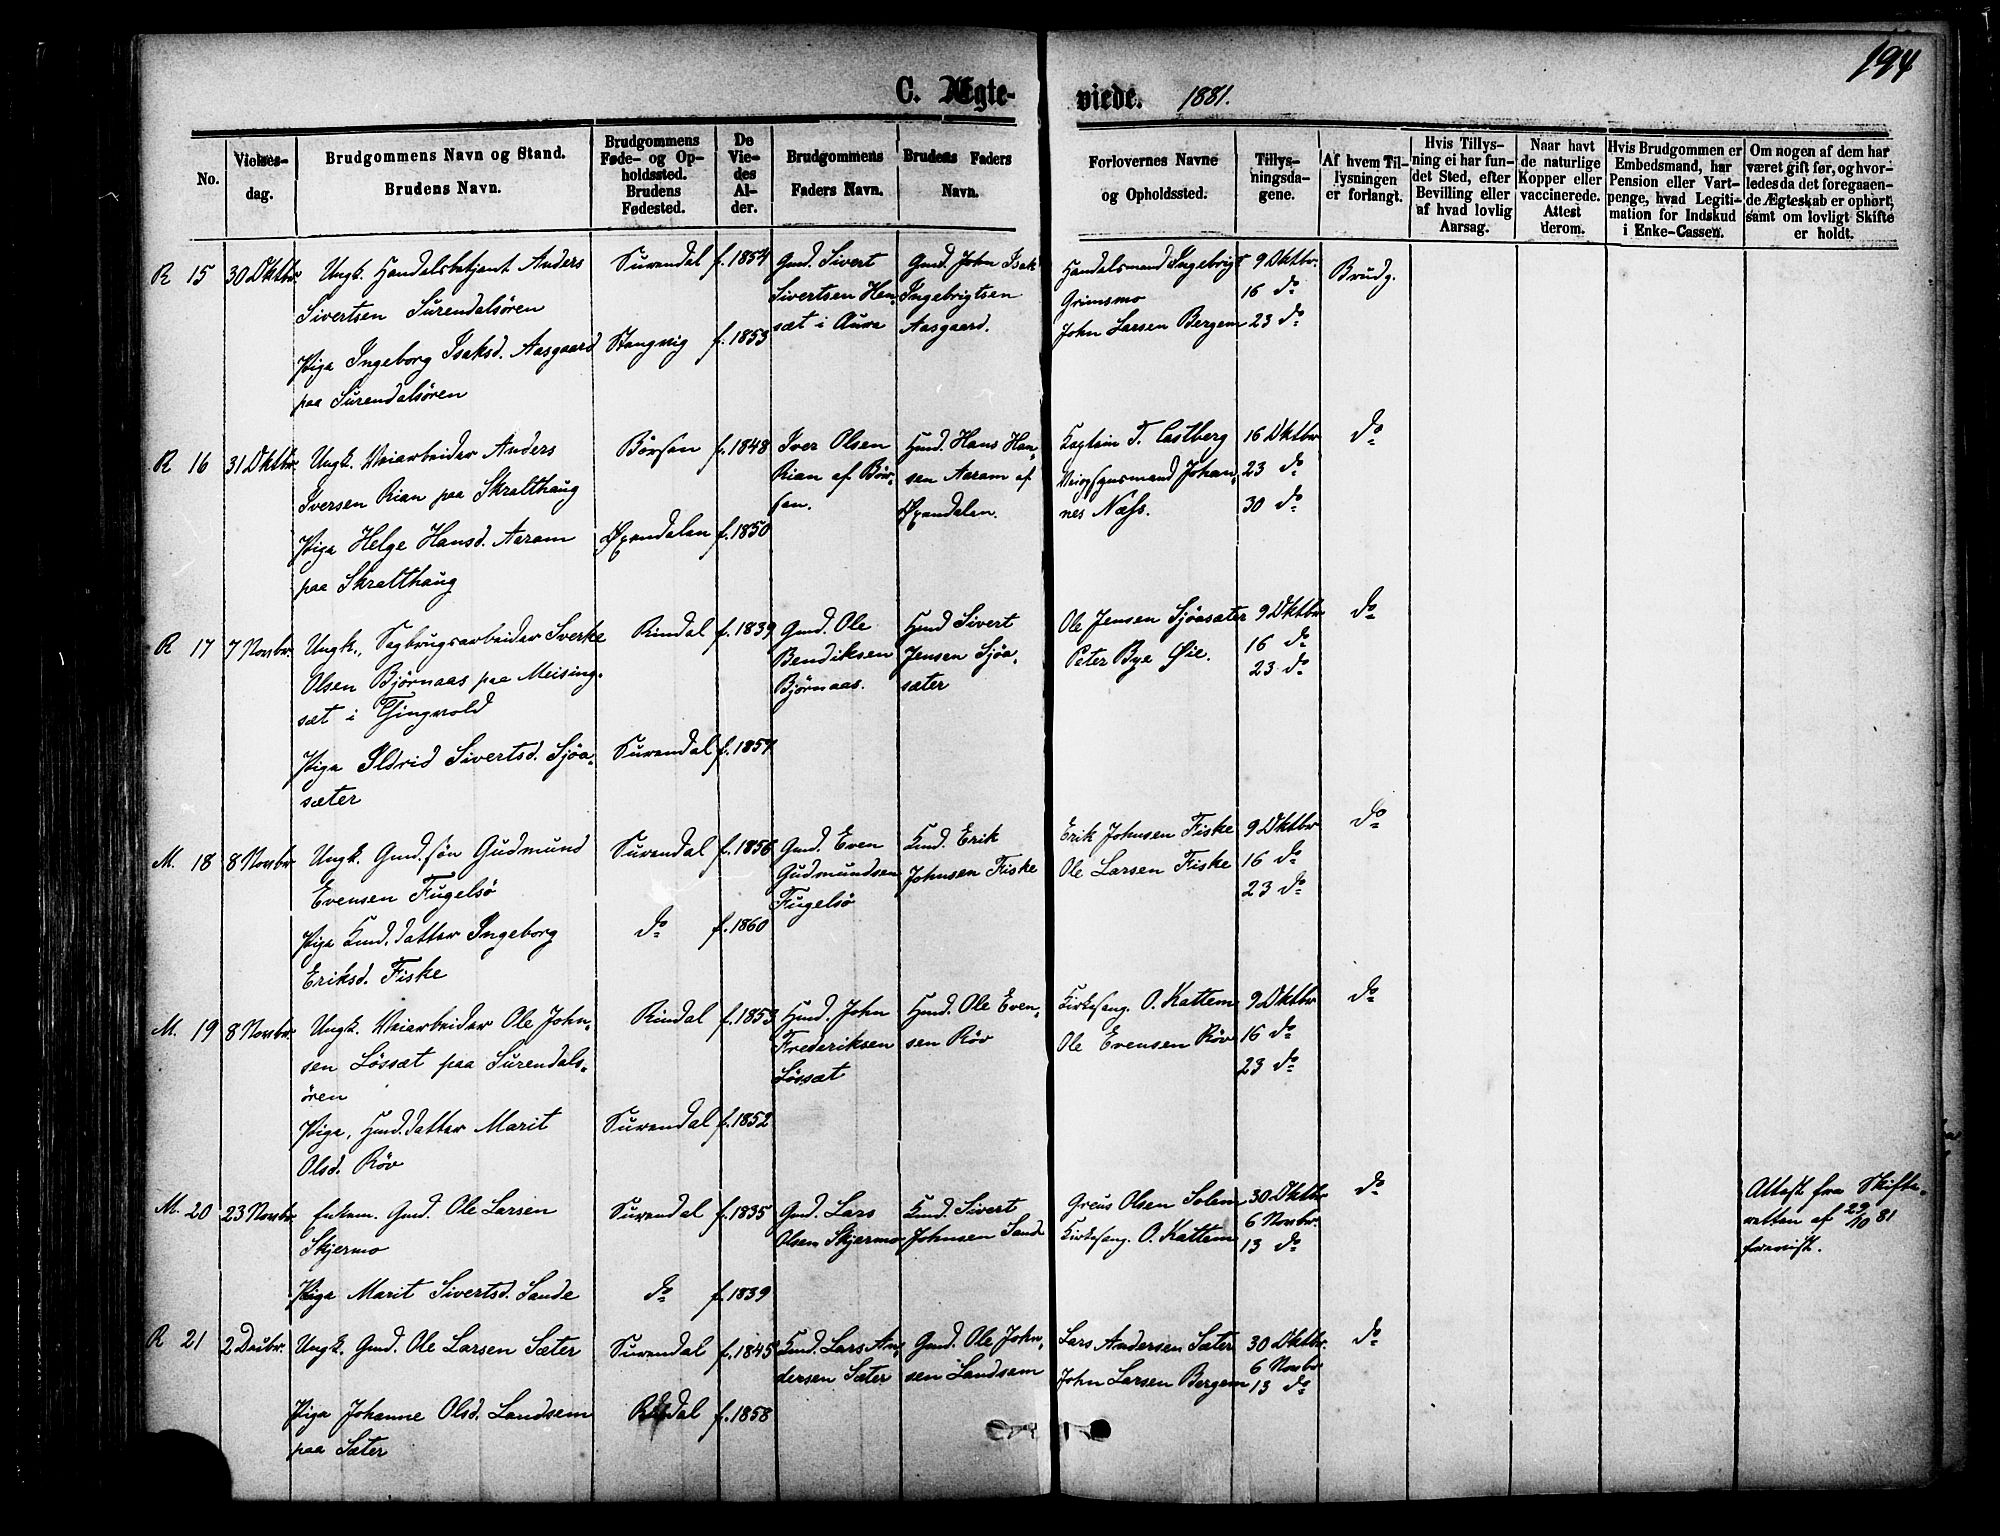 194
C. Ægte-
viede. 1881.
No.
Vielses-
dag.
Brudgommens Navn og Stand.
Brudens Navn.
Brudgommens
Føde- og Op-
holdssted.
Brudens
Fødested.
De
Vie-
des
Al-
der.
Brudgommens
Faders Navn.
Brudens Faders
Navn.
Forlovernes Navne
og Opholdssted.
Tillys-
ningsda-
gene.
Af hvem Til-
lysningen
er forlangt.
Hvis Tillys-
ning ei har fun-
det Sted, efter
Bevilling eller
af hvad lovlig
Aarsag.
Naar havt
de naturlige
Kopper eller
vaccinerede.
Attest
derom.
Hvis Brudgommen er
Embedsmand, har
Pension eller Vart-
penge, hvad Legiti-
mation for Indskud
i Enke-Cassen.
Om nogen af dem har
været gift før, og hvor-
ledes da det foregaaen-
de Ægteskab er ophørt,
samt om lovligt Skifte
er holdt.
R 15
30 Oktbr.
Ungk. Handelsbetjent Anders
Sivertsen Surendalsören
Pige Ingeborg Isaksd. Aasgaard
paa Surendalsören
Surendal
Stangvig
f. 1854
f. 1853
Gmd. Sivert
Sivertsen Hen-
sæt i Aure
Gmd. John Isak
Ingebrigtsen
Aasgaard.
Handelsmand Ingebrigt
Grimsmo
John Larsen Bergem
9 Oktbr.
16 do
23 do
Brudg.
R 16
31 Oktbr.
Ungk. Veiarbeider Anders
Iversen Rian paa Skralthaug
Pige Helge Hansd. Aaram
paa Skralthaug
Börsen
Øxendalen
f. 1848
f. 1850
Iver Olsen
Rian af Bör-
sen.
Husmd. Hans Han-
sen Aaram af
Øxendalen.
Kaptein T. Castberg
Veiopsynsmand Johan-
nes Næss.
16 Oktbr
23 do
30 do
do
R 17
7 Novbr.
Ungk., Sagbrugsarbeider Sverke
Olsen Björnaas paa Meising-
sæt i Thingvold
Pige Ildrid Sivertsd. Sjöa-
sæter
Rindal
Surendal
f. 1839
f. 1857
Gmd. Ole
Bendiksen
Björnaas.
Husmd Sivert
Jensen Sjöa-
sæter
Ole Jensen Sjöasæter
Peter Bye Øie.
9 Oktbr
16 do
23 do
do
M. 18
8 Novbr
Ungk. Gmd.sön Gudmund
Evensen Fugelsö
Pige Kmd.datter Ingeborg
Eriksd. Fiske
Surendal
do
f. 1856
f. 1860
Gmd. Even
Gudmundsen
Fugelsö
Kmd. Erik
Johnsen Fiske
Erik Johnsen Fiske
Ole Larsen Fiske
9 Oktbr
16 do
23 do
do
M. 19
8 Novbr.
Ungk. Veiarbeider Ole John-
sen Lössæt paa Surendals-
ören
Pige, Husmd.datter Marit
Olsd. Röv
Rindal
Surendal
f. 1853
f. 1852
Husmd. John
Frederiksen
Lössæt
Husmd. Ole Even-
sen Röv
Kirkesang. O. Kattem
Ole Evensen Röv
9 Oktbr
16 do
23 do
do
M. 20
23 Novbr
Enkem. Gmd. Ole Larsen
Skjermo
Pige Marit Sivertsd. Sande
Surendal
do
f. 1835
f. 1839
Gmd. Lars
Olsen Skjermo
Kmd. Sivert
Johnsen Sande
Greus Olsen Solem
Kirkesang. O. Kattem
30 Oktbr
6 Novbr.
13 do
do
Attest fra Skifte-
retten af 29/10 81
forevist.
R 21
2 Decbr.
Ungk. Gmd. Ole Larsen Sæter
Pige Johanne Olsd. Landsem
paa Sæter
Surendal
f. 1845
f. 1858
Kmd. Lars An-
dersen Sæter
Gmd. Ole John-
sen Landsem
Lars Andersen Sæter
John Larsen Bergem
30 Oktbr.
6 Novbr
13 do
do